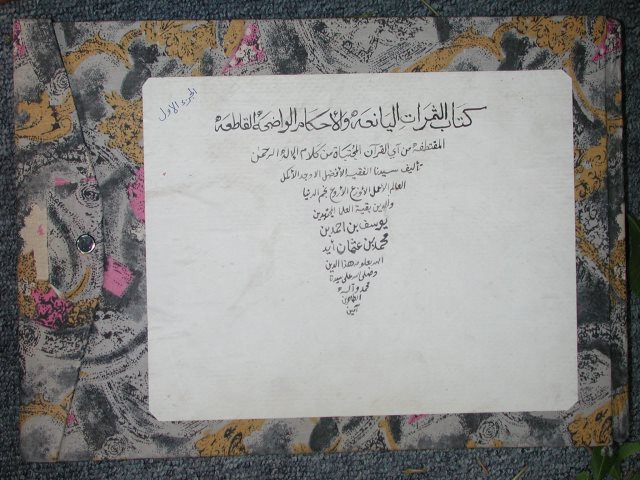 الجزء الاول
كتاب الثمرات اليانعه والاحكام الواضحه القاطعه
المقتطفه من آي القرآن المجتباة من كلام الواحد الرحمن
تأليف سيدنا الفقيه الأفضل الاوحد الأكمل
العالم الأعمل الأورع الأروع نجم الدنيا
والدين بقية العلماء المجتهدين
يوسف بن احمد بن
محمد بن عثمان أيد
الله بعلومه هذا الدين
وصلى الله على سيدنا
محمد وآله
الطاهرين
آمين